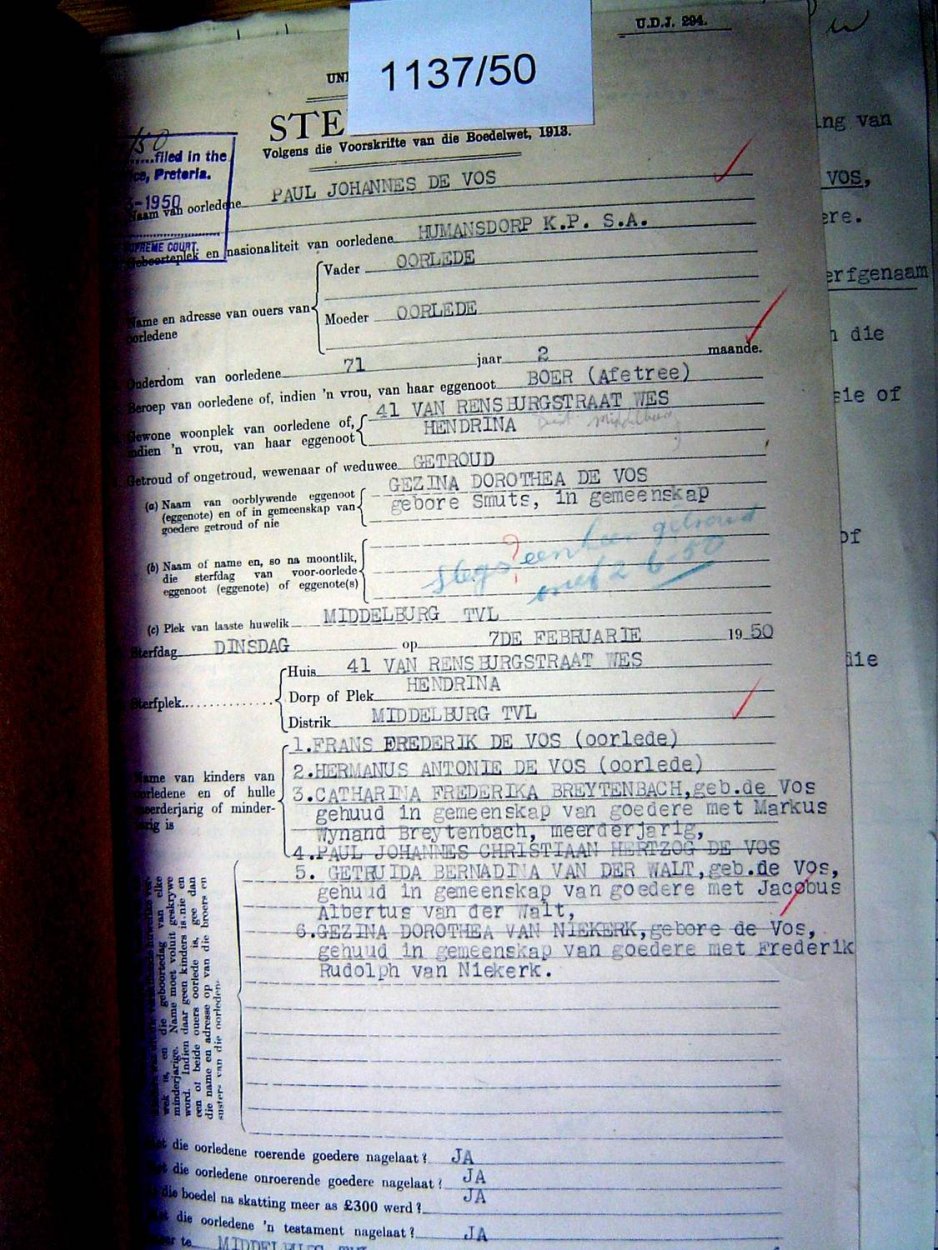 U.D.J. 294.
1137/50
UNI
STE
Volgens die Voorskrifte van die Boedelwet, 1913.
/50
filed in the
ce, Pretoria.
-1950
SUPREME COURT.
Naam van oorledene PAUL JOHANNES DE VOS
Geboorteplek en nasionaliteit van oorledene HUMANSDORP K.P. S.A.
Name en adresse van ouers van oorledene
Vader OORLEDE
Moeder OORLEDE
Ouderdom van oorledene 71 jaar 2 maande.
Beroep van oorledene of, indien 'n vrou, van haar eggenoot BOER (Afetree)
Gewone woonplek van oorledene of, 41 VAN RENSBURGSTRAAT WES
indien 'n vrou, van haar eggenoot HENDRINA
Getroud of ongetroud, wewenaar of weduwee GETROUD
(a) Naam van oorblywende eggenoot GEZINA DOROTHEA DE VOS
(eggenote) en of in gemeenskap van gebore Smuts, in gemeenskap
goedere getroud of nie
(b) Naam of name en, so na moontlik,
die sterfdag van voor-oorlede
eggenoot (eggenote) of eggenote(s)
? slegs eenkeer getroud
2-6-50
(c) Plek van laaste huwelik MIDDELBURG TVL
Sterfdag DINSDAG op 7DE FEBRUARIE 1950
Sterfplek
Huis 41 VAN RENSBURGSTRAAT WES
Dorp of Plek HENDRINA
Distrik MIDDELBURG TVL
Name van kinders van
oorledene en of hulle
meerderjarig of minder-
jarig is
1.FRANS FREDERIK DE VOS (oorlede)
2.HERMANUS ANTONIE DE VOS (oorlede)
3.CATHARINA FREDERIKA BREYTENBACH,geb.de Vos
gehuud in gemeenskap van goedere met Markus
Wynand Breytenbach, meerderjarig,
4.PAUL JOHANNES CHRISTIAAN HERTZOG DE VOS
5. GETRUIDA BERNADINA VAN DER WALT,geb.de Vos,
gehuud in gemeenskap van goedere met Jacobus
Albertus van der Walt,
6.GEZINA DOROTHEA VAN NIEKERK,gebore de Vos,
gehuud in gemeenskap van goedere met Frederik
Rudolph van Niekerk.
wek is, en die geboortedag van elke
minderjarige. Name moet voluit geskrywe
word. Indien daar geen kinders is nie en
een of beide ouers oorlede is, gee dan
die name en adresse op van die broers en
susters van die oorledene.
die oorledene roerende goedere nagelaat? JA
die oorledene onroerende goedere nagelaat? JA
die boedel na skatting meer as £300 werd? JA
die oorledene 'n testament nagelaat? JA
te MIDDELBURG TVL
ing van
VOS,
ere.
erfgenaam
n die
sie of
of
die